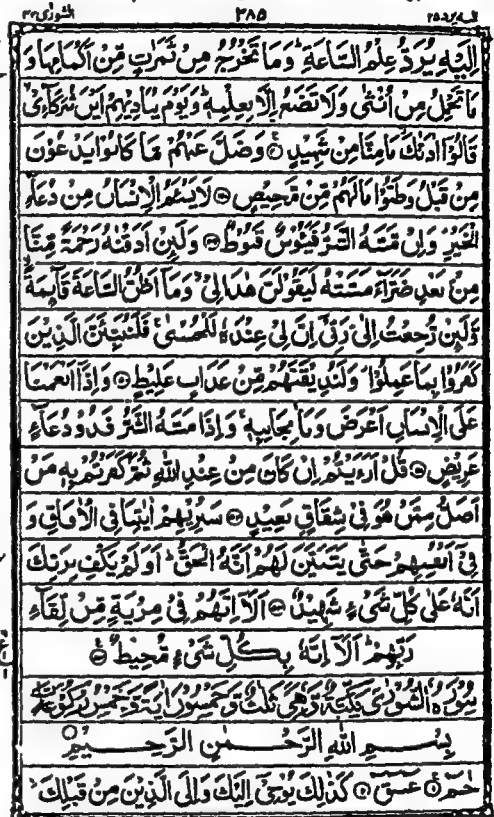 اليه يرد ٢٥ ٣٨٥ الشورٰى ٤٢
اِلَیْهِ یُرَدُّ عِلْمُ السَّاعَةِ ؕ وَمَا تَخْرُجُ مِنْ ثَمَرٰتٍ مِّنْ اَكْمَامِهَا وَ
مَا تَحْمِلُ مِنْ اُنْثٰی وَلَا تَضَعُ اِلَّا بِعِلْمِهٖ ؕ وَیَوْمَ یُنَادِیْهِمْ اَیْنَ شُرَكَآءِیْ ۙ
قَالُوْۤا اٰذَنّٰكَ ۙ مَا مِنَّا مِنْ شَهِیْدٍ ۚ وَضَلَّ عَنْهُمْ مَّا كَانُوْا یَدْعُوْنَ
مِنْ قَبْلُ وَظَنُّوْا مَا لَهُمْ مِّنْ مَّحِیْصٍ ۝ لَا یَسْـَٔمُ الْاِنْسَانُ مِنْ دُعَآءِ
الْخَیْرِ ۫ وَاِنْ مَّسَّهُ الشَّرُّ فَیَـُٔوْسٌ قَنُوْطٌ ۝ وَلَىِٕنْ اَذَقْنٰهُ رَحْمَةً مِّنَّا
مِنْۢ بَعْدِ ضَرَّآءَ مَسَّتْهُ لَیَقُوْلَنَّ هٰذَا لِیْ ۙ وَمَاۤ اَظُنُّ السَّاعَةَ قَآىِٕمَةً ۙ
وَّلَىِٕنْ رُّجِعْتُ اِلٰی رَبِّیْۤ اِنَّ لِیْ عِنْدَهٗ لَلْحُسْنٰی ۚ فَلَنُنَبِّئَنَّ الَّذِیْنَ
كَفَرُوْا بِمَا عَمِلُوْا ۫ وَلَنُذِیْقَنَّهُمْ مِّنْ عَذَابٍ غَلِیْظٍ ۝ وَاِذَاۤ اَنْعَمْنَا
عَلَی الْاِنْسَانِ اَعْرَضَ وَنَاٰ بِجَانِبِهٖ ۚ وَاِذَا مَسَّهُ الشَّرُّ فَذُوْ دُعَآءٍ
عَرِیْضٍ ۝ قُلْ اَرَءَیْتُمْ اِنْ كَانَ مِنْ عِنْدِ اللّٰهِ ثُمَّ كَفَرْتُمْ بِهٖ مَنْ
اَضَلُّ مِمَّنْ هُوَ فِیْ شِقَاقٍۭ بَعِیْدٍ ۝ سَنُرِیْهِمْ اٰیٰتِنَا فِی الْاٰفَاقِ وَ
فِیْۤ اَنْفُسِهِمْ حَتّٰی یَتَبَیَّنَ لَهُمْ اَنَّهُ الْحَقُّ ؕ اَوَلَمْ یَكْفِ بِرَبِّكَ
اَنَّهٗ عَلٰی كُلِّ شَیْءٍ شَهِیْدٌ ۝ اَلَاۤ اِنَّهُمْ فِیْ مِرْیَةٍ مِّنْ لِّقَآءِ
رَبِّهِمْ ؕ اَلَاۤ اِنَّهٗ بِكُلِّ شَیْءٍ مُّحِیْطٌ ۝
سُوْرَةُ الشُّوْرٰی مَكِّیَّةٌ وَّهِیَ ثَلٰثٌ وَّخَمْسُوْنَ اٰیَةً وَّخَمْسُ رُكُوْعَاتٍ
بِسْمِ اللّٰهِ الرَّحْمٰنِ الرَّحِیْمِ ۝
حٰمٓ ۝ عٓسٓقٓ ۝ كَذٰلِكَ یُوْحِیْۤ اِلَیْكَ وَاِلَی الَّذِیْنَ مِنْ قَبْلِكَ ۙ